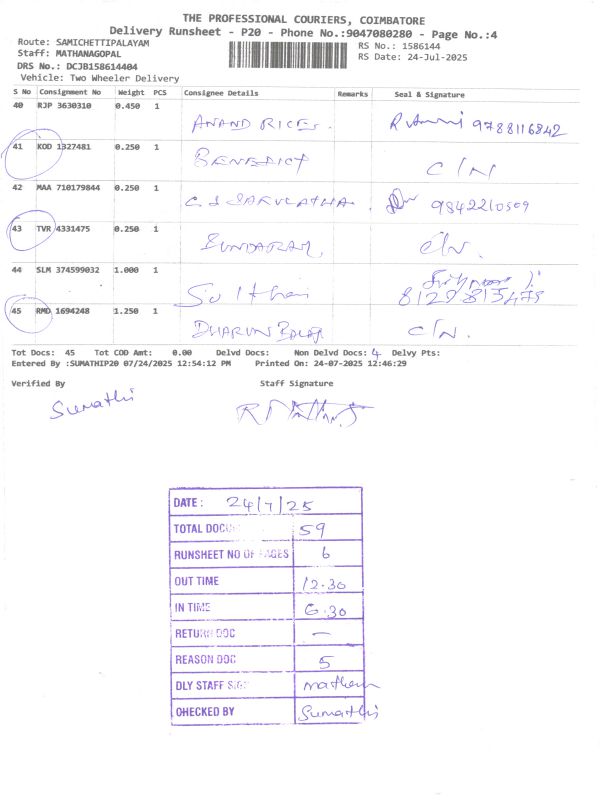 THE PROFESSIONAL COURIERS, COIMBATORE
Delivery Runsheet - P20 - Phone No.:9047080280 - Page No.:4
Route: SAMICHETTIPALAYAM RS No.: 1586144
Staff: MATHANAGOPAL RS Date: 24-Jul-2025
DRS No.: DCJB158614404
Vehicle: Two Wheeler Delivery
S No Consignment No Weight PCS Consignee Details Remarks Seal & Signature
40 RJP 3630310 0.450 1
ANAND RICES. 9788116842
41 KOD 1327481 0.250 1
BENEDICT C/N
42 MAA 710179844 0.250 1
9842210509
43 TVR 4331475 0.250 1
SUNDARAM C/N.
44 SLM 374599032 1.000 1
8129815479
45 RMD 1694248 1.250 1
DHARUN BALAJ C/N.
Tot Docs: 45 Tot COD Amt: 0.00 Delvd Docs: Non Delvd Docs: 4 Delvy Pts:
Entered By :SUMATHIP20 07/24/2025 12:54:12 PM Printed On: 24-07-2025 12:46:29
Verified By Staff Signature
Sumathi
DATE : 24/7/25
TOTAL DOCU 59
RUNSHEET NO OF PAGES 6
OUT TIME 12.30
IN TIME 6.30
RETURN DOC —
REASON DOC 5
DLY STAFF SIGN mathan
CHECKED BY Sumathi